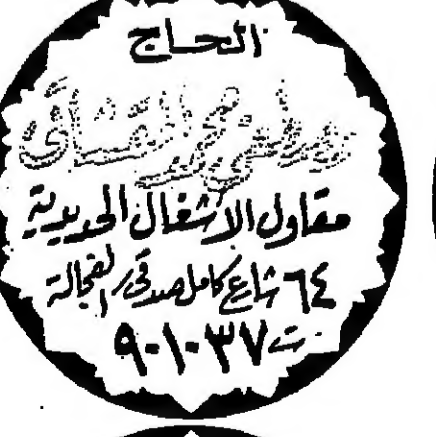 الحاج
محمد
مقاول الاشغال الحديدية
٦٤ شارع كامل صدقى الفجالة
ت ٩٠١٠٣٧